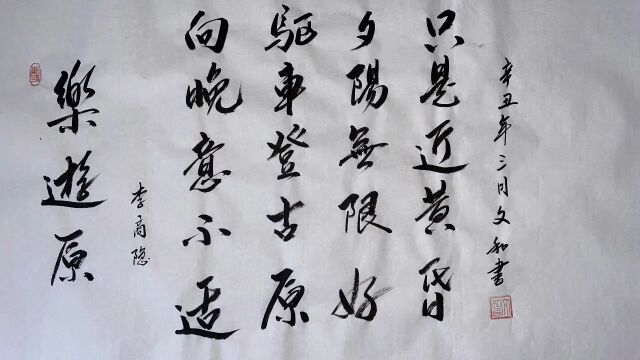 樂遊原
李商隐
向晚意不适
驱車登古原
夕陽無限好
只是近黄昏
辛丑年三月文和書